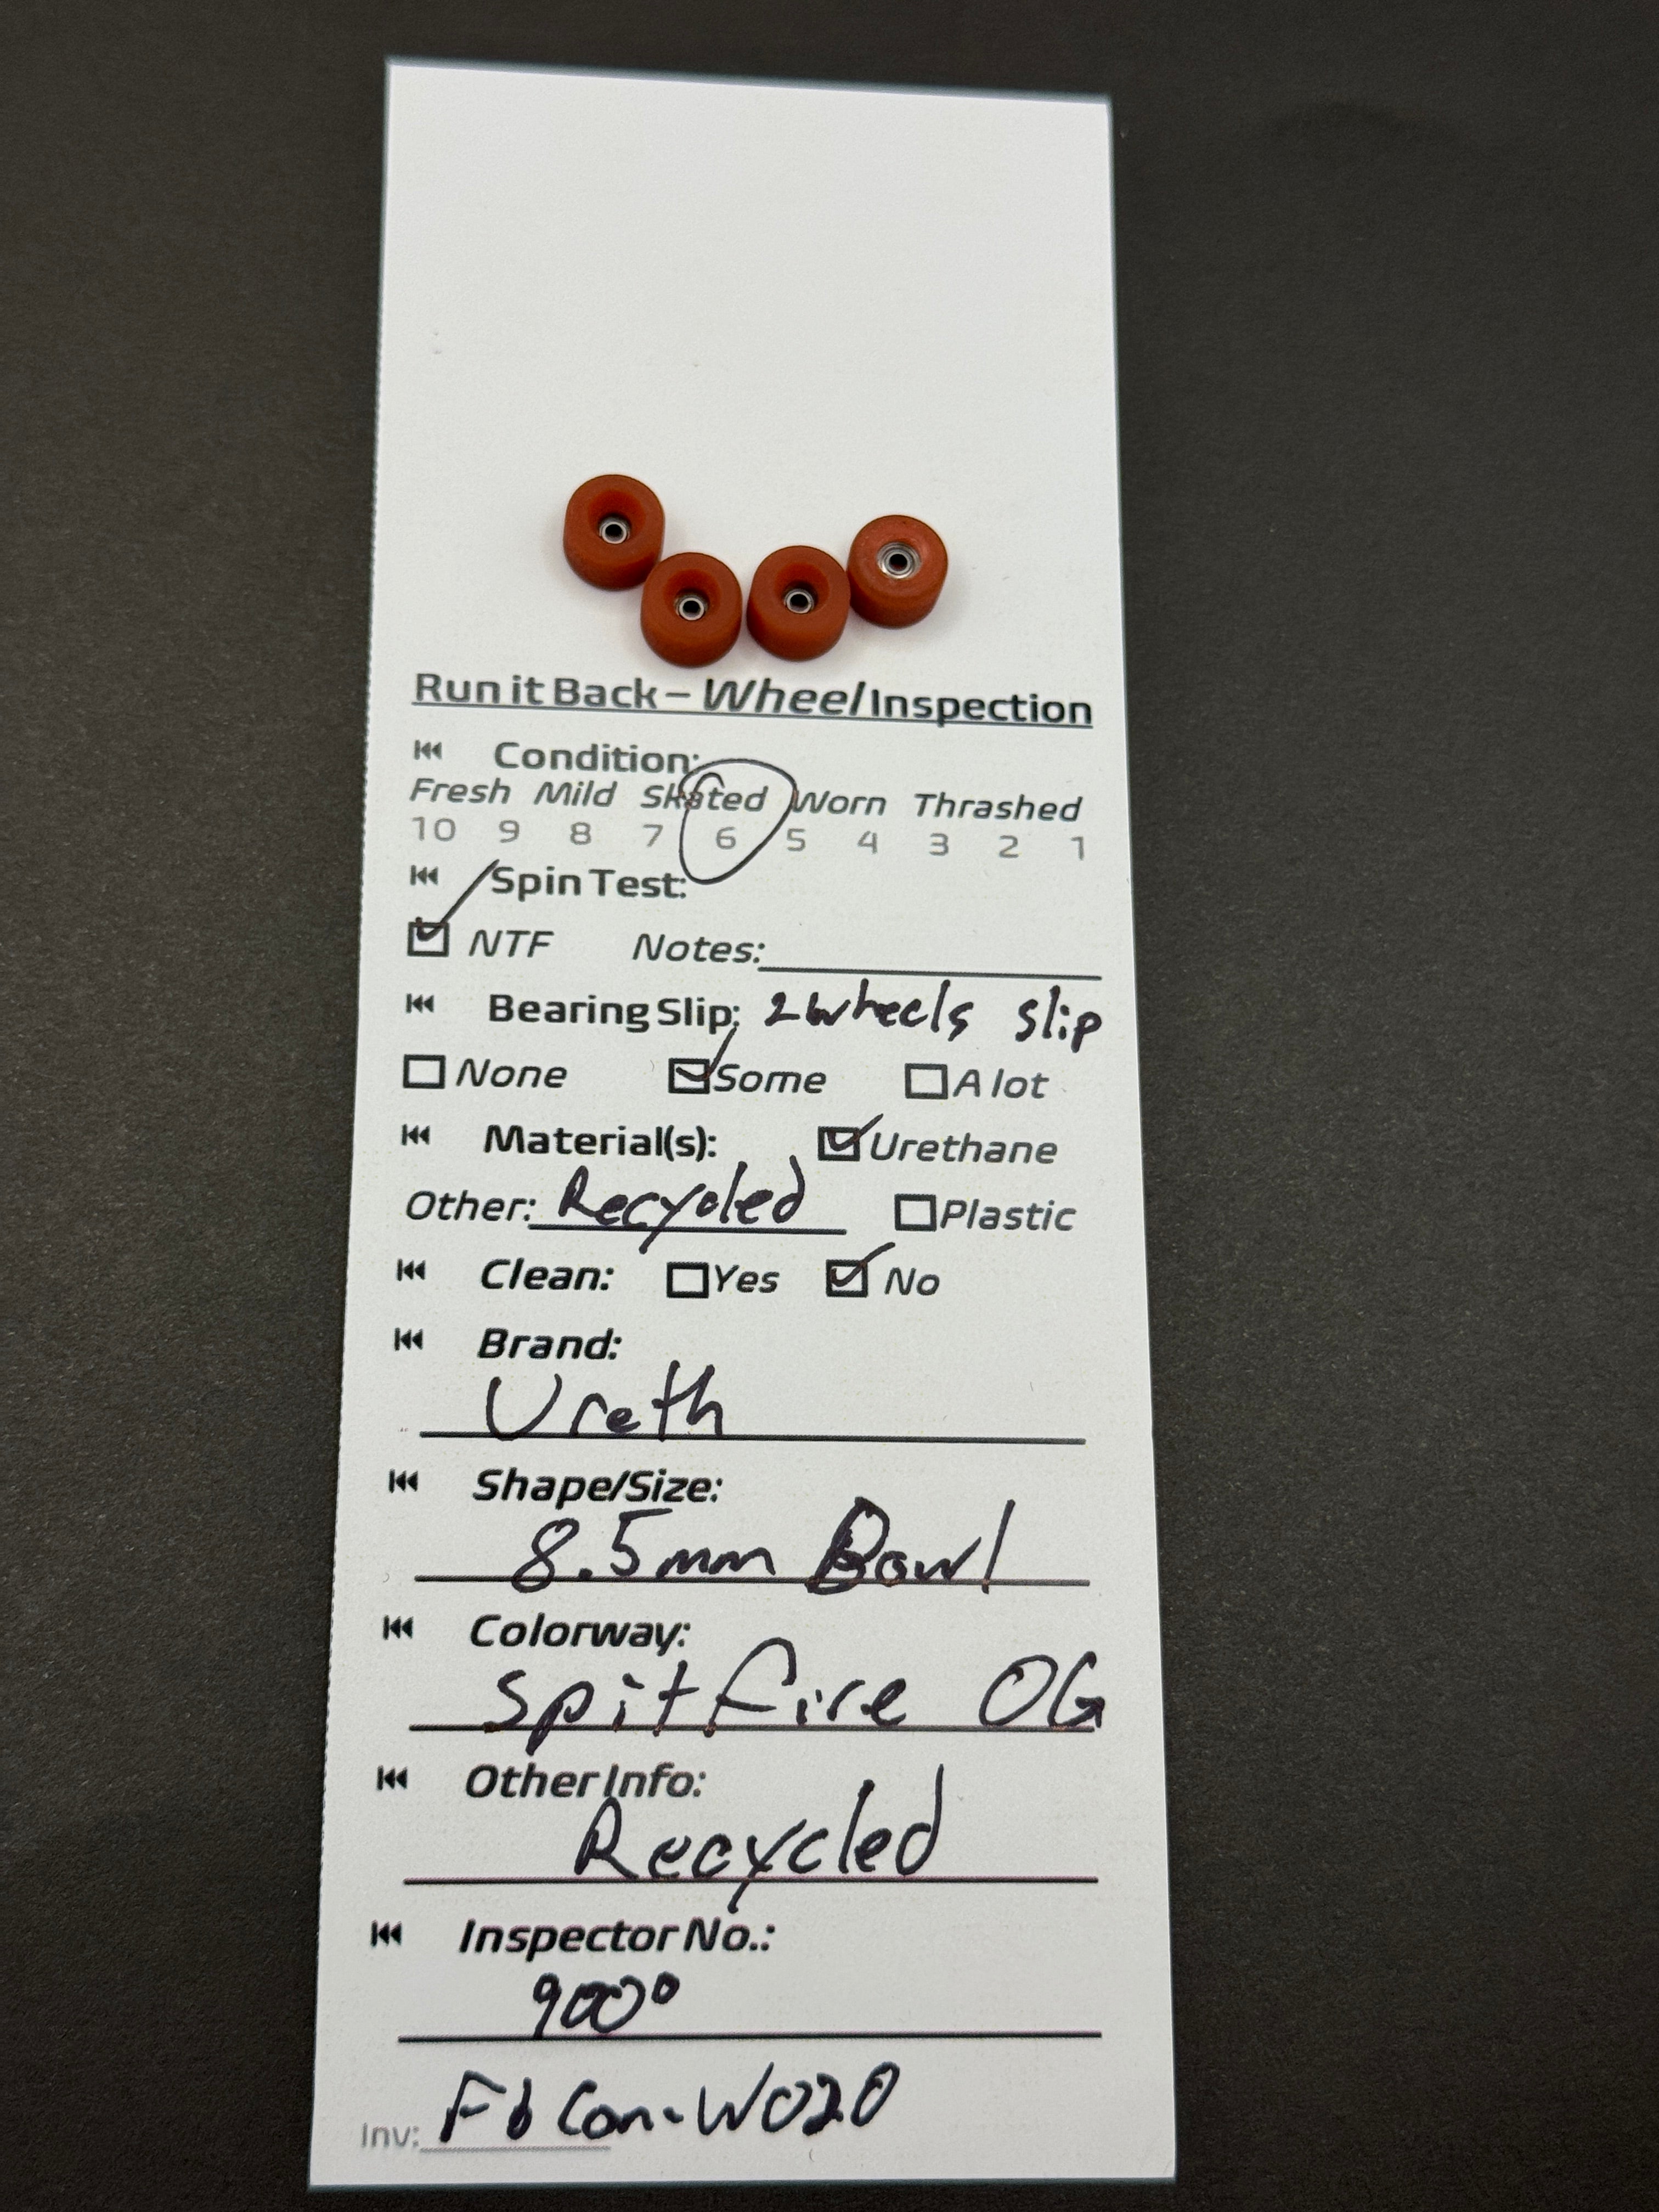 Run it Back – Wheel Inspection
Condition:
Fresh Mild Skated Worn Thrashed
10 9 8 7 6 5 4 3 2 1
Spin Test:
NTF Notes:
Bearing Slip: 2 wheels slip
None Some A lot
Material(s): Urethane
Other: Recycled Plastic
Clean: Yes No
Brand:
Ureth
Shape/Size:
8.5mm Bowl
Colorway:
Spitfire OG
Other Info:
Recycled
Inspector No.:
900°
Inv: Fb Con-W020